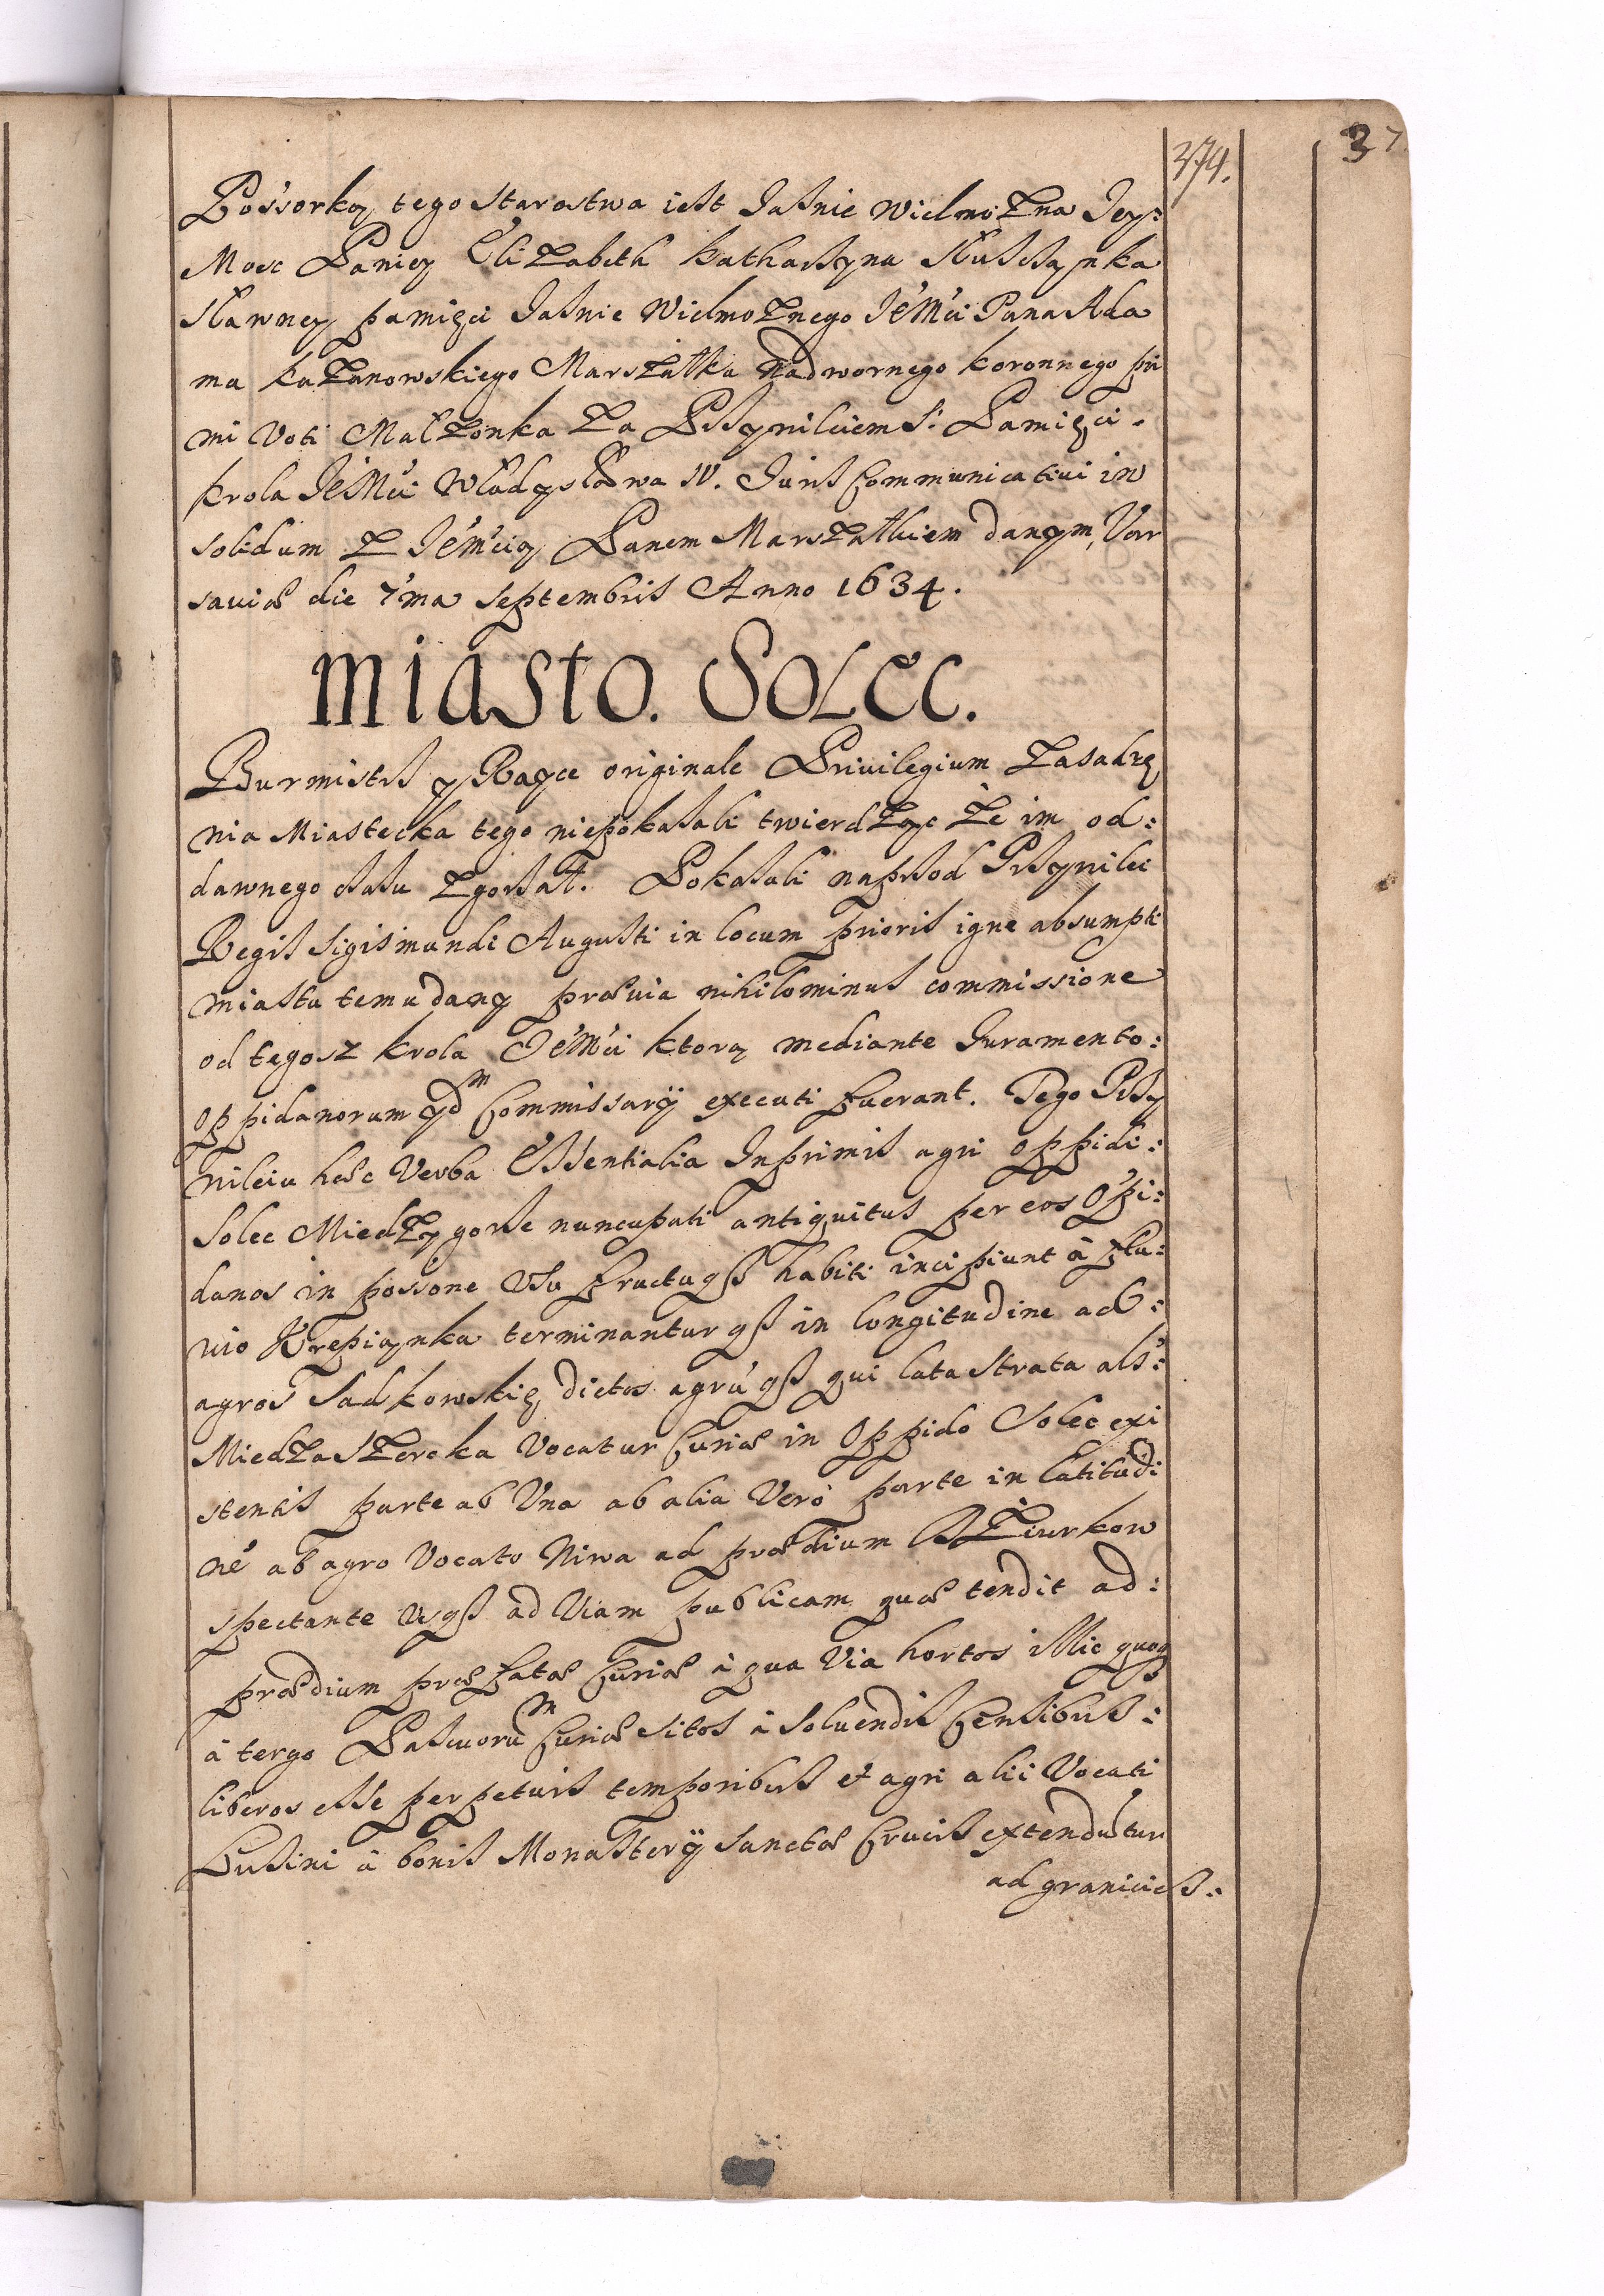 374.
37
Possorką tego starostwa iest Jasnie wielmożna Jey:
Mosc Paniey Elizabeth Katharzyna Słuszczynka
sławney pamięci Jasnie Wielmożnego JéMći Pana Ada
ma Kazanowskiego Marszałka nadwornego koronnego pri
mi voti Małżonka za Przywileiem S: Pamięci.
Krola JéMći Władysława IV. Juris Communicatiui in
solidum z Jéṁcią Panem Marszałkiem danym, Var
sauiæ die 7ma Septembris Anno 1634.
Miasto. Solec.
Burmistrz y Rayce originale Priuilegium zasadzę
nia Miastecka tego niepokazali twierdząc że im od:
dawnego czasu zgorzał. Pokazali naprzod Przywilei
Regis Sigismundi Augusti in locum prioris igne absumpti
miastu temu dany præuia nihilominus commissione
od tegosz Krola JéMći ktorą mediante Juramento:
oppidanorum qdm Commissarÿ executi fuerant. Tego Przy
wileiu hæc Verba Essentialia Inprimis agri oppidi:
Solec Miedzygorze nuncupati antiquitus per eos Oppi:
danos in possone Usu fructuqß habiti incipiunt à flu:
uio Krepianka terminanturqß in longitudine ad:
agros Sadkowskie dictos agrúqß qui lata strata als:
Miedza Szeroka Vocatur Curiæ in Oppido Solec exi
stentis parte ab Vna ab alia Verò parte in latitudi
né ab agro Vocato Niwa ad prædium Dziurkow
spectante usqß ad Viam publicam quæ tendit ad:
prædium præfatæ Curiæ à qua Via hortos illic quoq
à tergo Pascuorum Curiæ sitos à soluendis Censibus:
liberos esse perpetuis temporibus et agri alii Vocati
Lusini à bonis Monasterÿ Sanctæ Crucis extendutur
ad granicies: